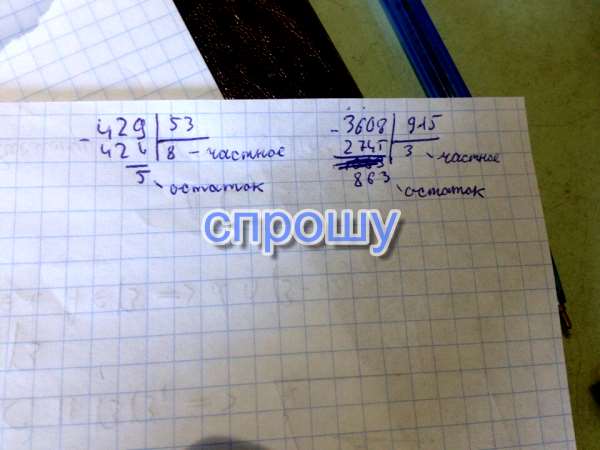 - 429 | 53
424 | 8 - частное
5 - остаток
- 3608 | 915
2745 | 3 - частное
863 - остаток
спрошу